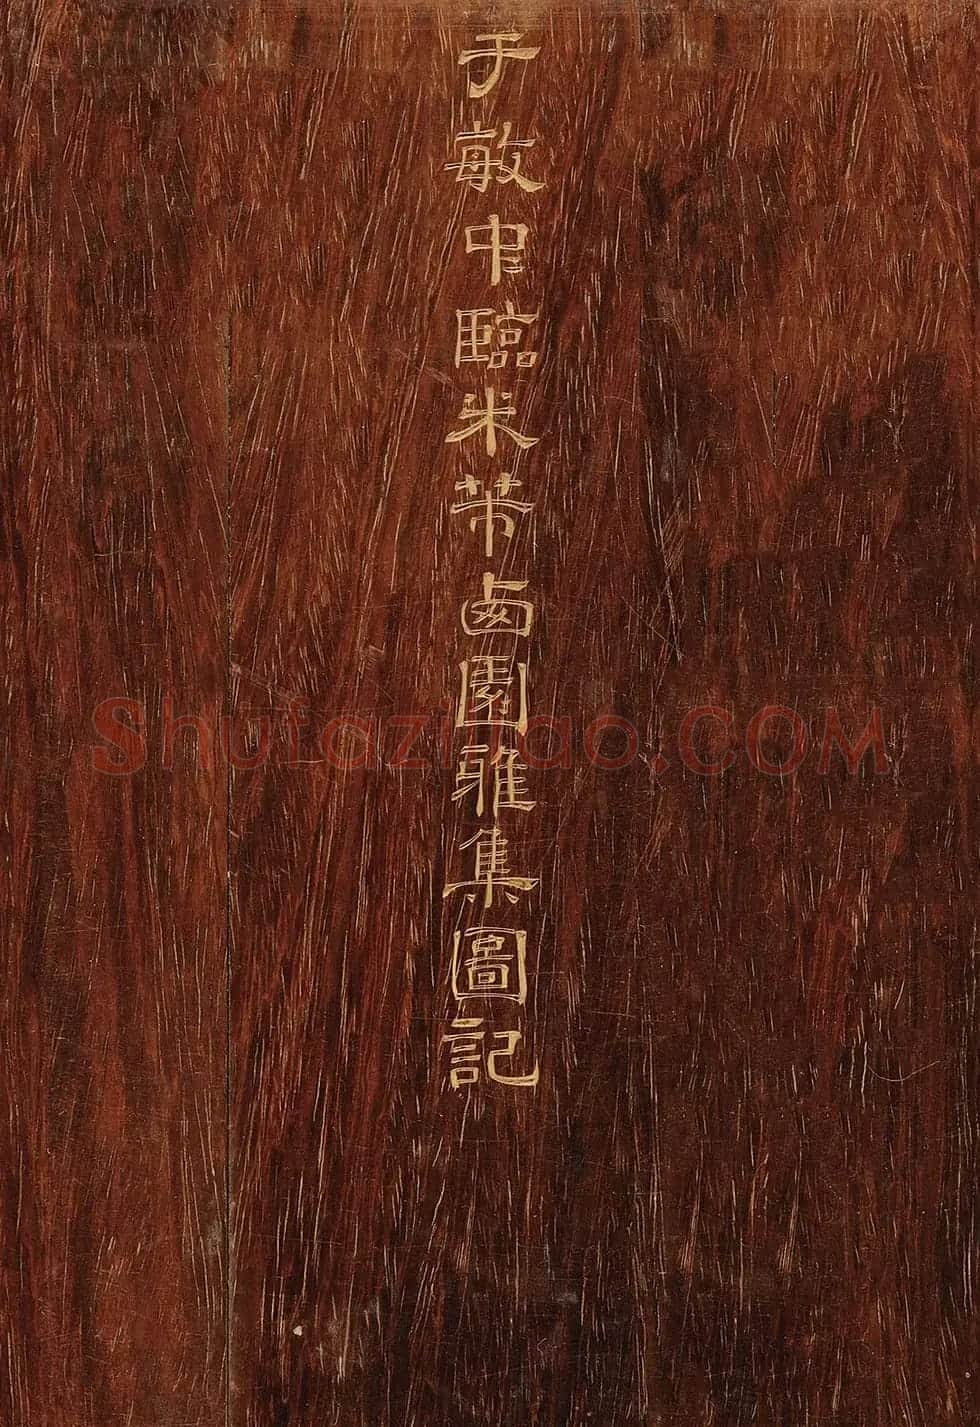 于敏中臨米芾西園雅集圖記
Shufaziliao.COM